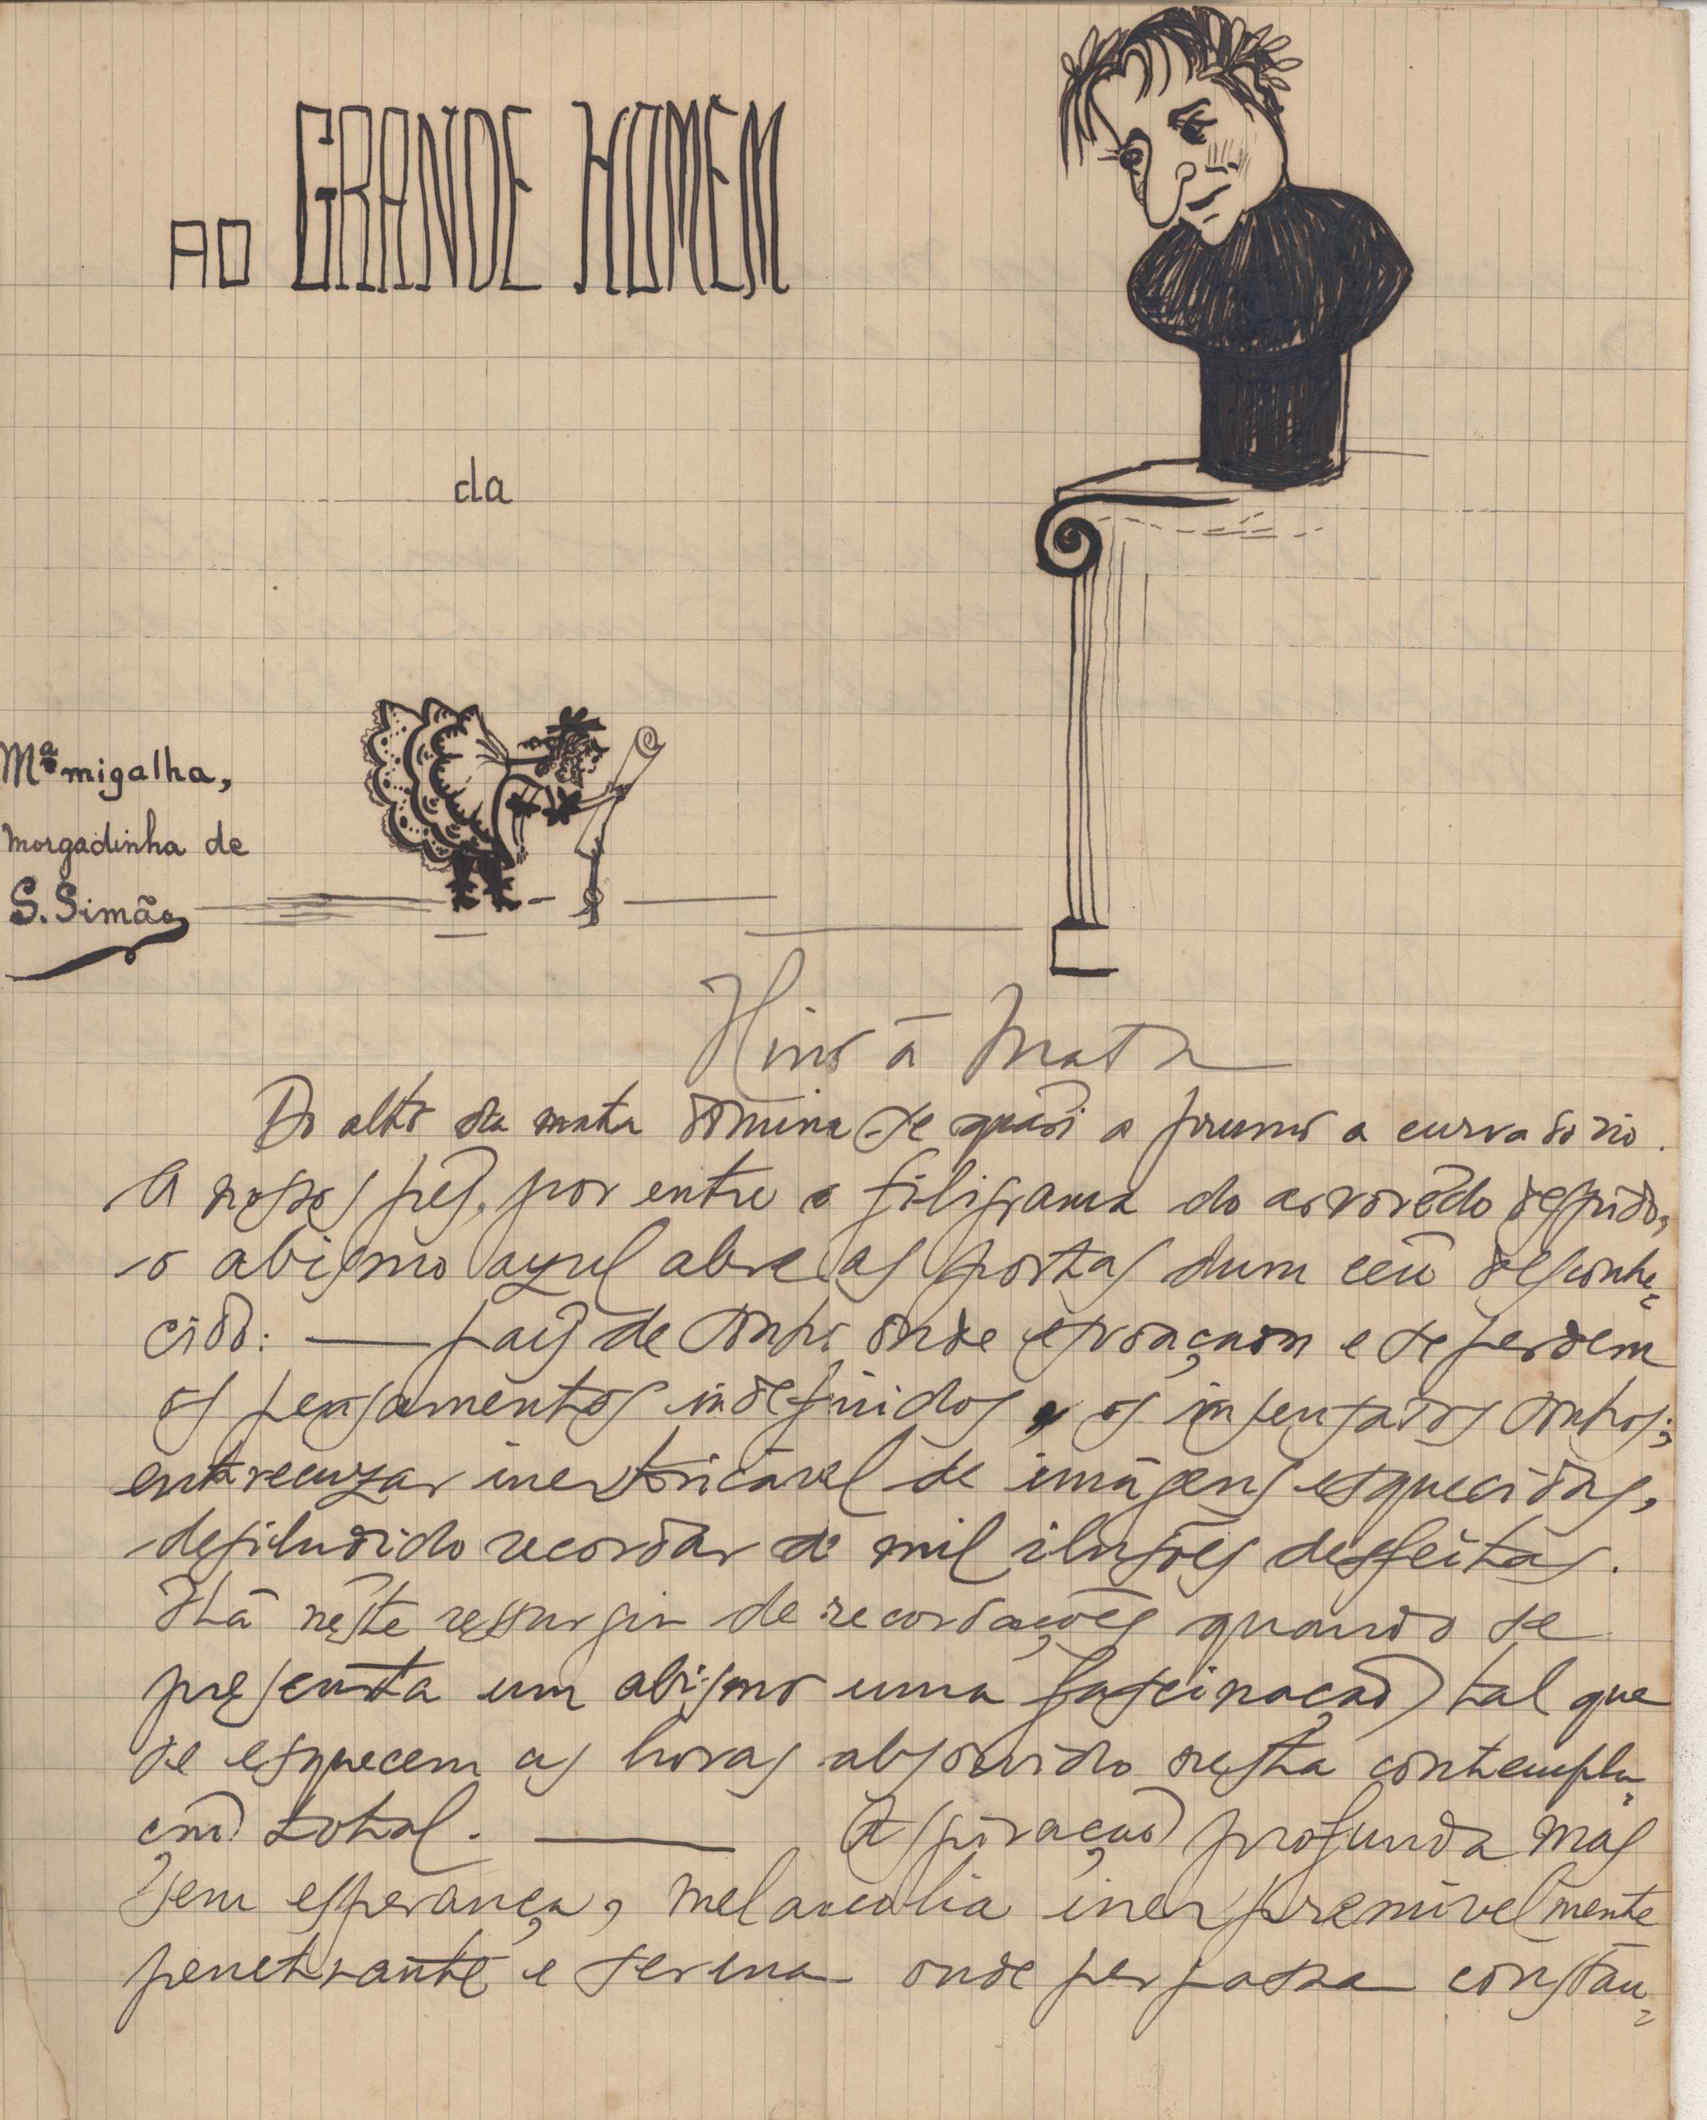 AO GRANDE HOMEM
da
Mª migalha,
morgadinha de
S. Simão
Hino à Mata
Do alto da mata domina-se quási a prumo a curva do rio.
A nossos pés, por entre a filigrama do arvorêdo despido,
o abismo azul abre as portas dum céu desconhe-
cido: — país de sonho onde esvoaçam e se perdem
os pensamentos indefinidos, os insensatos sonhos;
entrecruzar inextricável de imágens esquecidas,
desiludido recordar de mil ilusões desfeitas.
Há nêste ressurgir de recordações quando se
presenta um abismo uma fascinação tal que
se esquecem as horas absorvido nesta contempla-
ção total. — Aspiração profunda mas
sem esperança, melancolia inexpremivelmente
penetrante e serena onde perpassa constan-